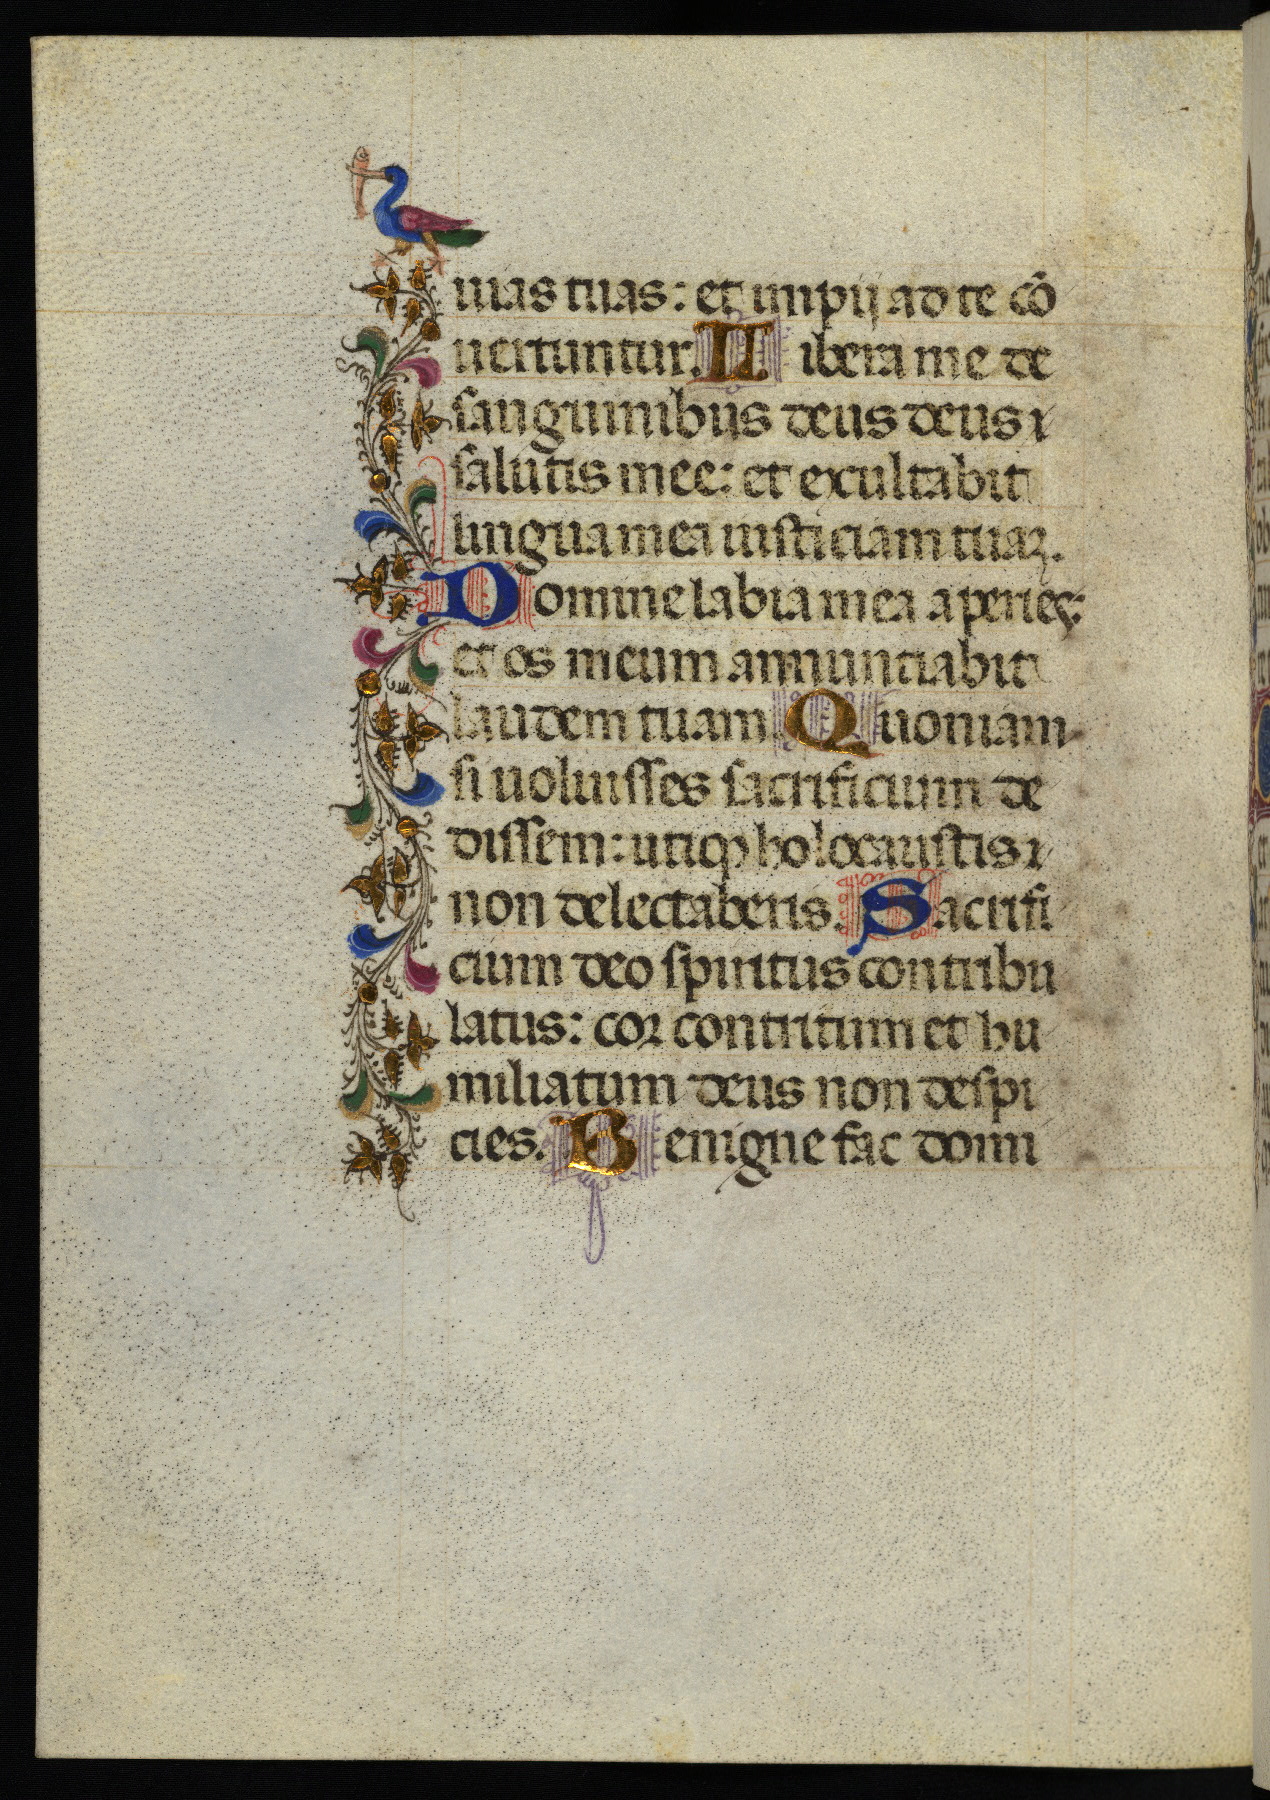 uias tuas: et impij ad te cō
uertuntur. Libera me de
sanguinibus deus deus
salutis mee: et exultabit
lingua mea iusticiam tuaꝫ.
Domine labia mea aperies:
et os meum annunciabit
laudem tuam. Quoniam
si uoluisses sacrificium de
dissem: utiqꝫ holocaustis
non delectaberis. Sacrifi
cium deo spiritus contribu
latus: cor contritum et hu
miliatum deus non despi
cies. Benigne fac domi